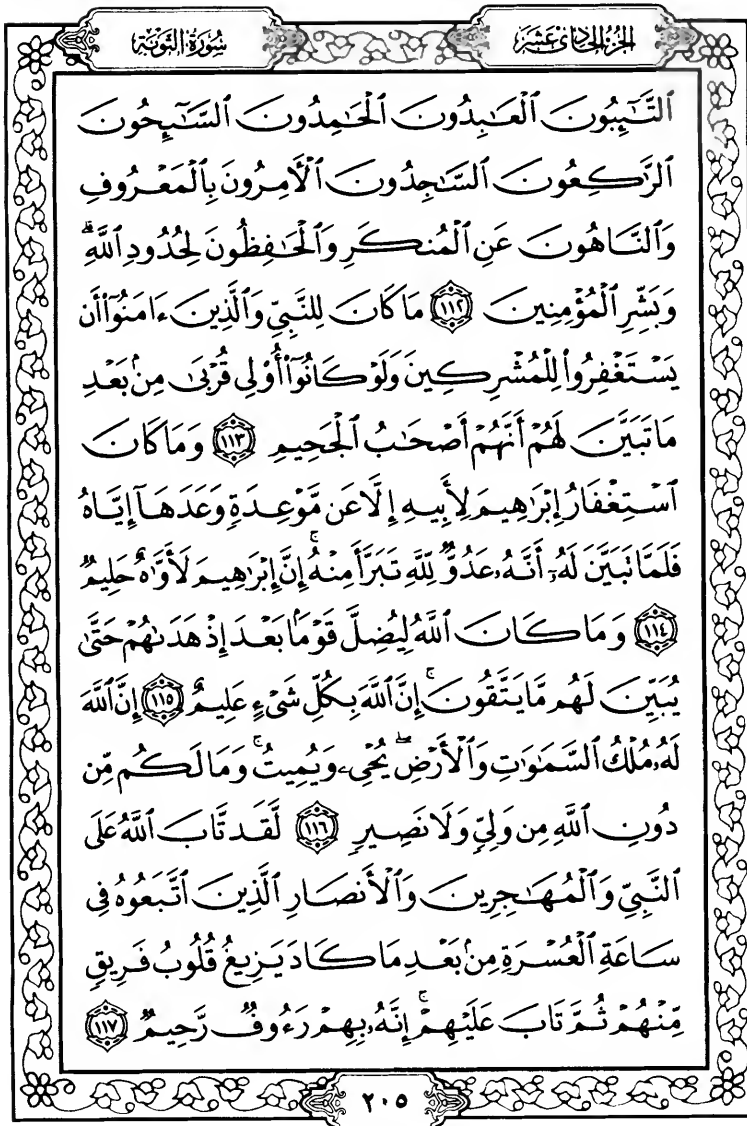 الجزء الحادي عشر
سورة التوبة
ٱلتَّـٰٓئِبُونَ ٱلْعَـٰبِدُونَ ٱلْحَـٰمِدُونَ ٱلسَّـٰٓئِحُونَ
ٱلرَّٰكِعُونَ ٱلسَّـٰجِدُونَ ٱلْـَٔامِرُونَ بِٱلْمَعْرُوفِ
وَٱلنَّاهُونَ عَنِ ٱلْمُنكَرِ وَٱلْحَـٰفِظُونَ لِحُدُودِ ٱللَّهِ ۗ
وَبَشِّرِ ٱلْمُؤْمِنِينَ ١١٢ مَا كَانَ لِلنَّبِيِّ وَٱلَّذِينَ ءَامَنُوٓا۟ أَن
يَسْتَغْفِرُوا۟ لِلْمُشْرِكِينَ وَلَوْ كَانُوٓا۟ أُو۟لِى قُرْبَىٰ مِنۢ بَعْدِ
مَا تَبَيَّنَ لَهُمْ أَنَّهُمْ أَصْحَـٰبُ ٱلْجَحِيمِ ١١٣ وَمَا كَانَ
ٱسْتِغْفَارُ إِبْرَٰهِيمَ لِأَبِيهِ إِلَّا عَن مَّوْعِدَةٍ وَعَدَهَآ إِيَّاهُ
فَلَمَّا تَبَيَّنَ لَهُۥٓ أَنَّهُۥ عَدُوٌّ لِّلَّهِ تَبَرَّأَ مِنْهُ ۚ إِنَّ إِبْرَٰهِيمَ لَأَوَّٰهٌ حَلِيمٌ
١١٤ وَمَا كَانَ ٱللَّهُ لِيُضِلَّ قَوْمًۢا بَعْدَ إِذْ هَدَىٰهُمْ حَتَّىٰ
يُبَيِّنَ لَهُم مَّا يَتَّقُونَ ۚ إِنَّ ٱللَّهَ بِكُلِّ شَىْءٍ عَلِيمٌ ١١٥ إِنَّ ٱللَّهَ
لَهُۥ مُلْكُ ٱلسَّمَـٰوَٰتِ وَٱلْأَرْضِ ۖ يُحْىِۦ وَيُمِيتُ ۚ وَمَا لَكُم مِّن
دُونِ ٱللَّهِ مِن وَلِىٍّ وَلَا نَصِيرٍ ١١٦ لَّقَد تَّابَ ٱللَّهُ عَلَى
ٱلنَّبِىِّ وَٱلْمُهَـٰجِرِينَ وَٱلْأَنصَارِ ٱلَّذِينَ ٱتَّبَعُوهُ فِى
سَاعَةِ ٱلْعُسْرَةِ مِنۢ بَعْدِ مَا كَادَ يَزِيغُ قُلُوبُ فَرِيقٍ
مِّنْهُمْ ثُمَّ تَابَ عَلَيْهِمْ ۚ إِنَّهُۥ بِهِمْ رَءُوفٌ رَّحِيمٌ ١١٧
٢٠٥